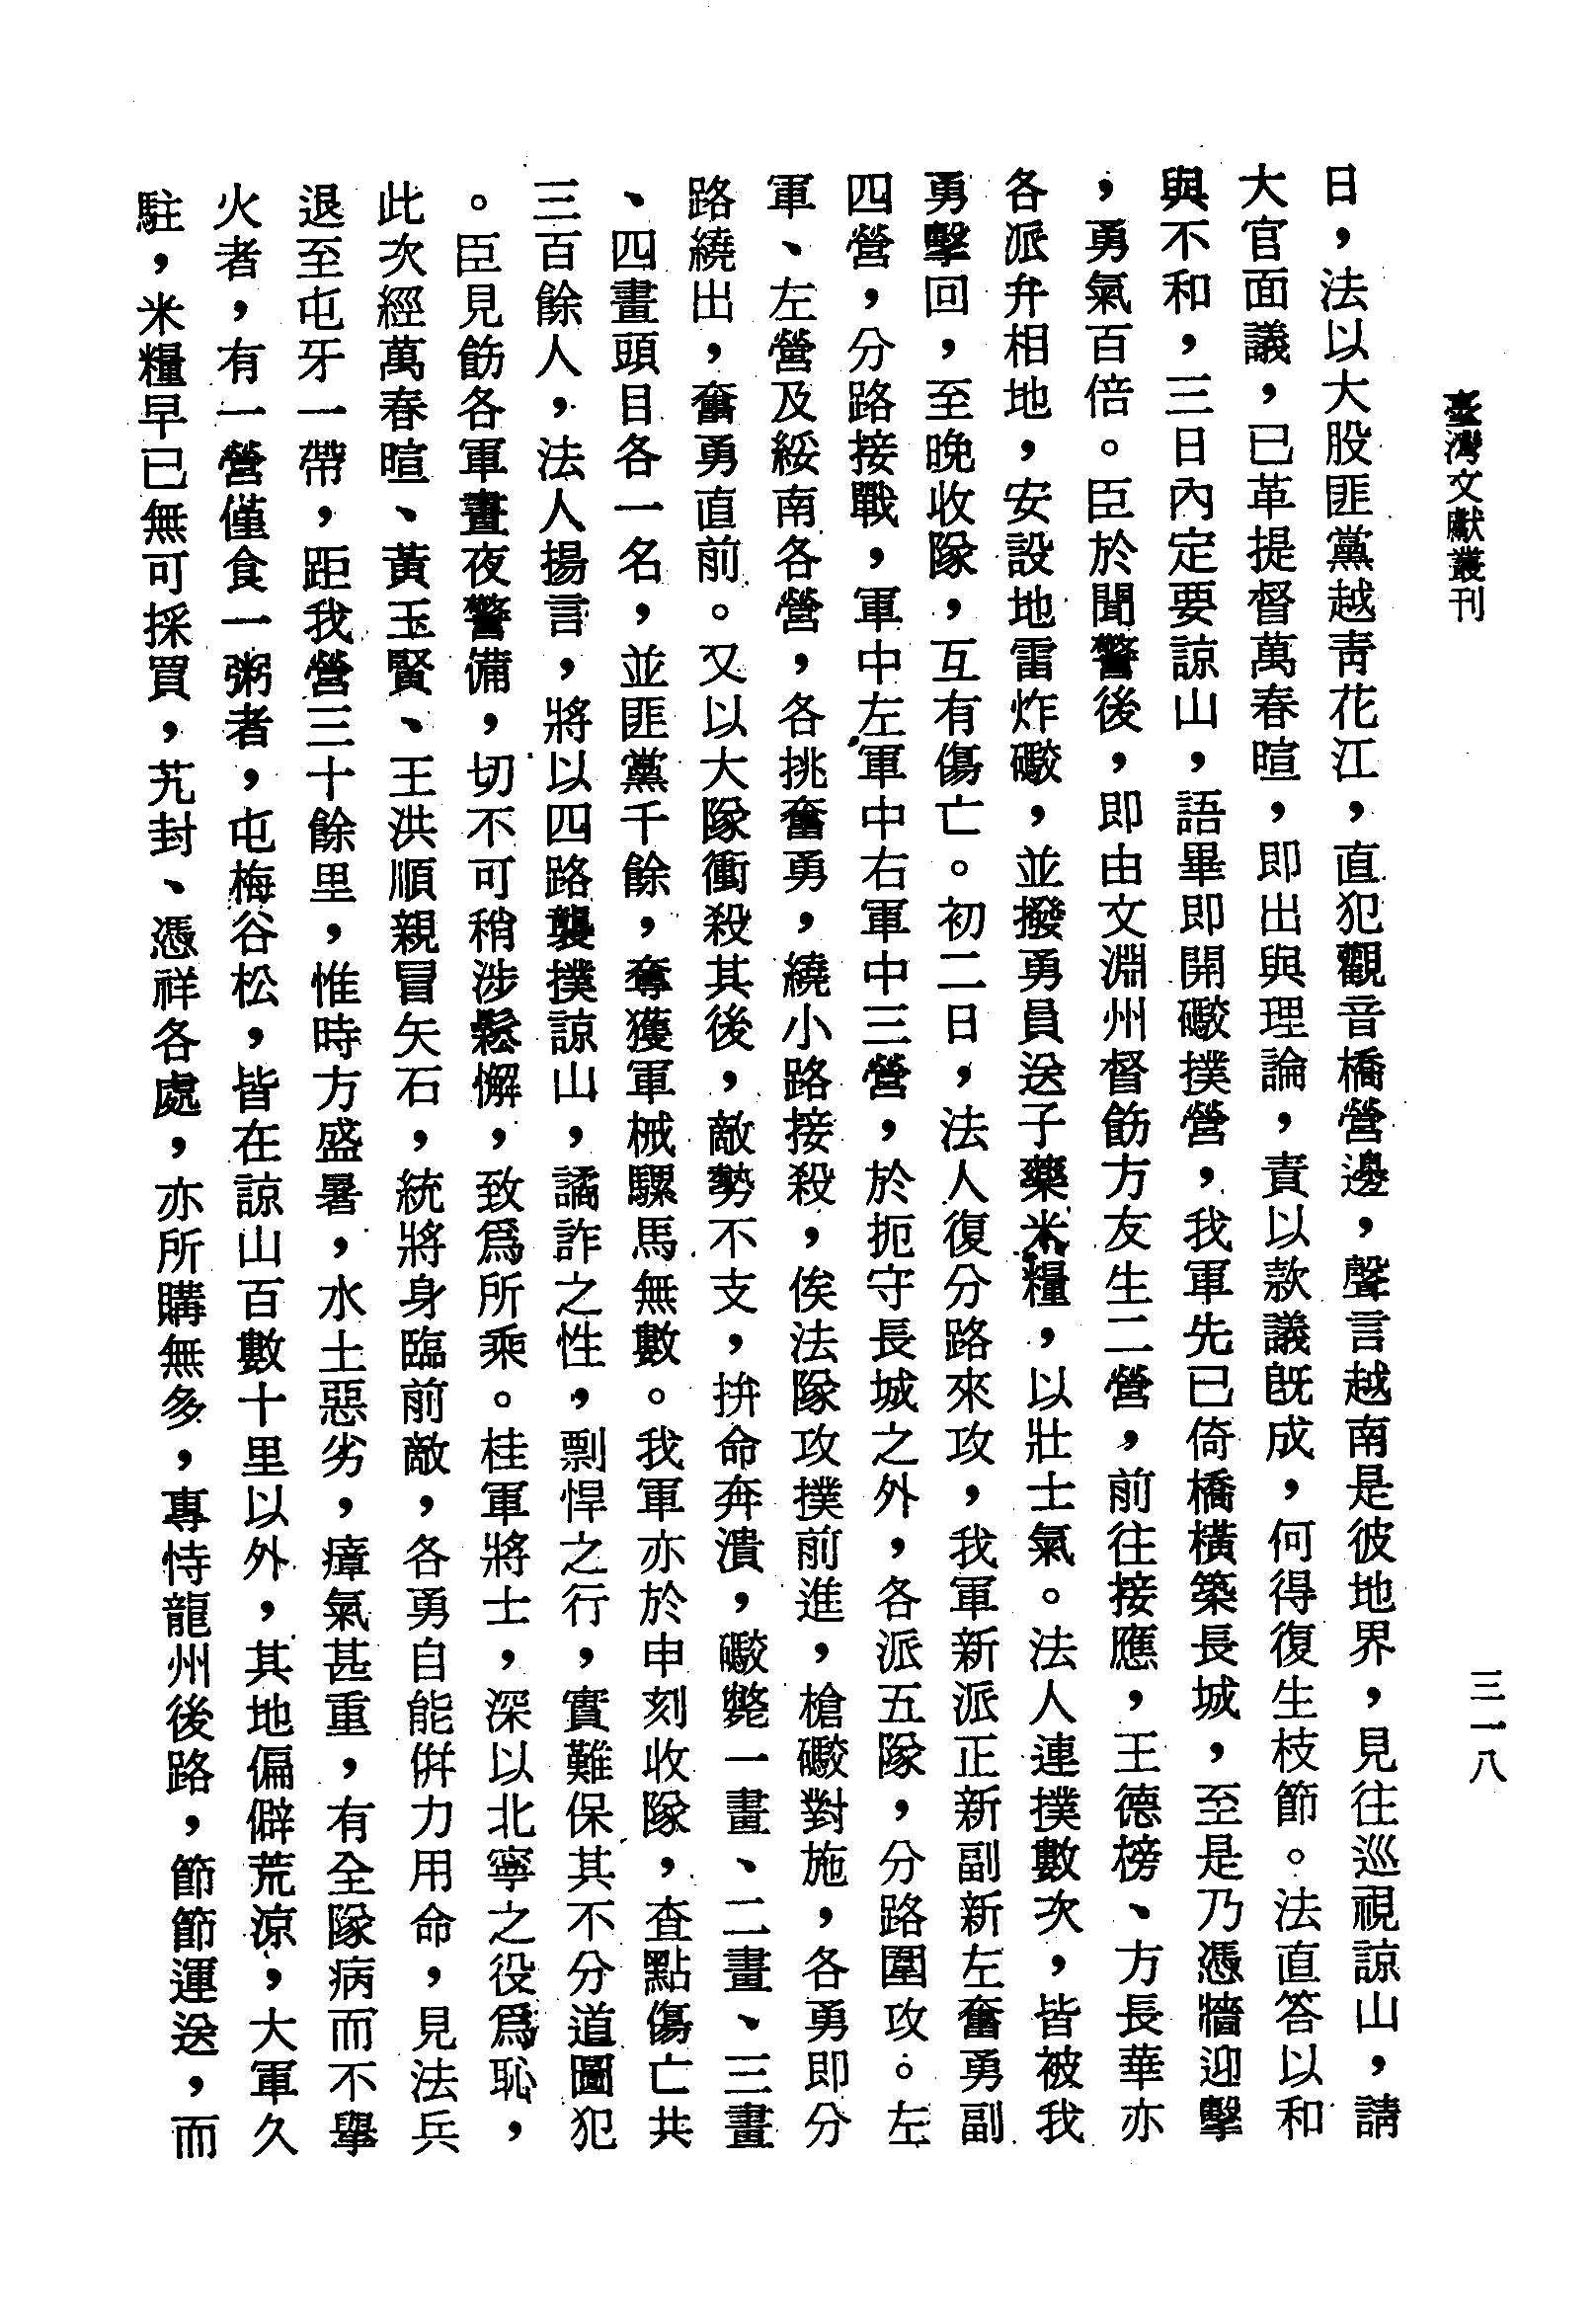 臺灣文獻叢刊
三一八
日，法以大股匪黨越青花江，直犯觀音橋營邊，聲言越南是彼地界，見往巡視諒山，請
大官面議，已革提督萬春暄，即出與理論，責以款議既成，何得復生枝節。法直答以和
與不和，三日內定要諒山，語畢即開礮撲營，我軍先已倚橋橫築長城，至是乃憑牆迎擊
，勇氣百倍。臣於聞警後，即由文淵州督飭方友生二營，前往接應，王德榜、方長華亦
各派弁相地，安設地雷炸礮，並撥勇員送子藥米糧，以壯士氣。法人連撲數次，皆被我
勇擊回，至晚收隊，互有傷亡。初二日，法人復分路來攻，我軍新派正新副新左奮勇副
四營，分路接戰，軍中左軍中右軍中三營，於扼守長城之外，各派五隊，分路圍攻。左
軍、左營及綏南各營，各挑奮勇，繞小路接殺，俟法隊攻撲前進，槍礮對施，各勇即分
路繞出，奮勇直前。又以大隊衝殺其後，敵勢不支，拚命奔潰，礮斃一畫、二畫、三畫
、四畫頭目各一名，並匪黨千餘，奪獲軍械騾馬無數。我軍亦於申刻收隊，查點傷亡共
三百餘人，法人揚言，將以四路襲撲諒山，譎詐之性，剽悍之行，實難保其不分道圖犯
。臣見飭各軍晝夜警備，切不可稍涉鬆懈，致爲所乘。桂軍將士，深以北寧之役爲恥，
此次經萬春暄、黃玉賢、王洪順親冒矢石，統將身臨前敵，各勇自能併力用命，見法兵
退至屯牙一帶，距我營三十餘里，惟時方盛暑，水土惡劣，瘴氣甚重，有全隊病而不舉
火者，有一營僅食一粥者，屯梅谷松，皆在諒山百數十里以外，其地偏僻荒涼，大軍久
駐，米糧早已無可採買，艽封、憑祥各處，亦所購無多，專恃龍州後路，節節運送，而